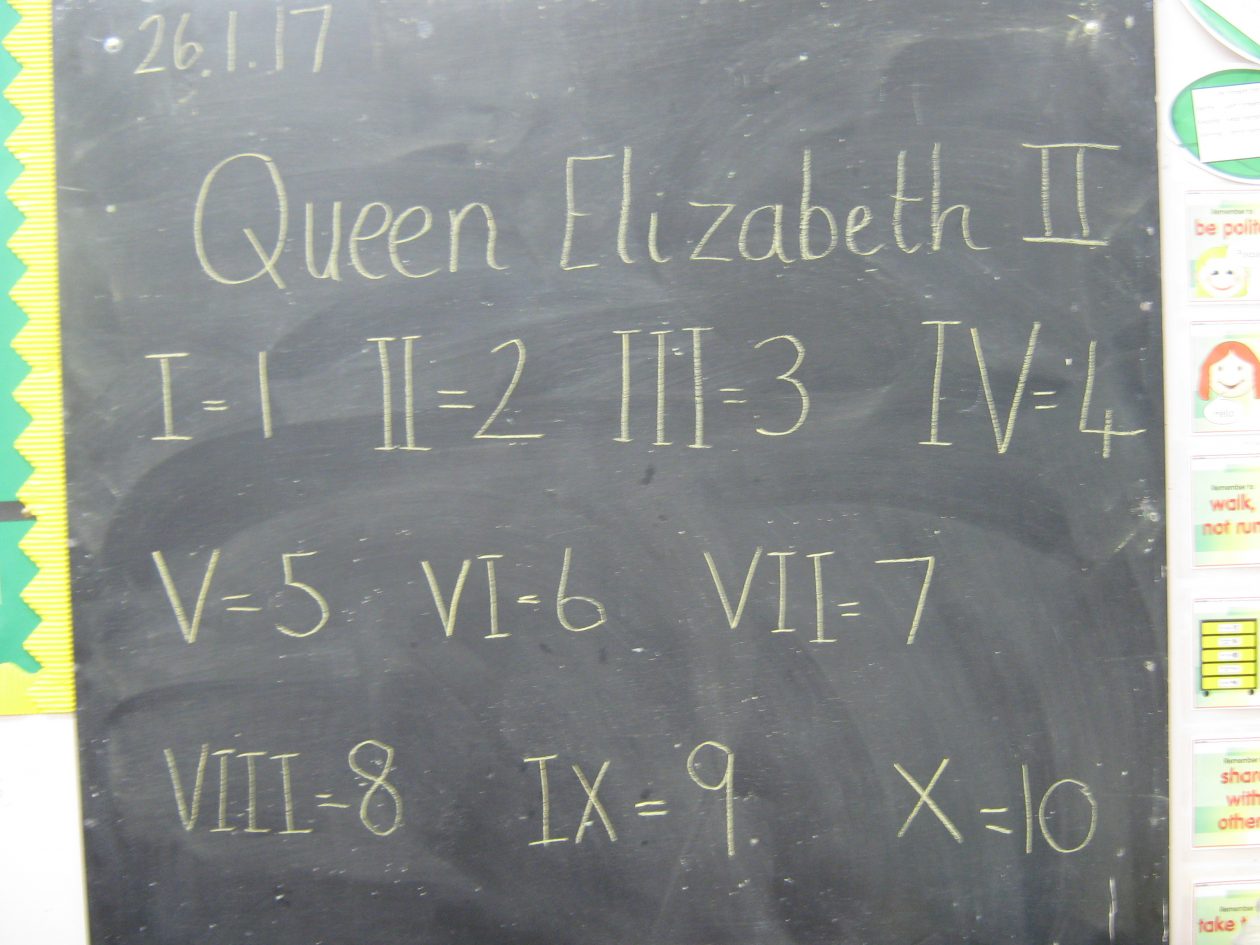 26.1.17
Queen Elizabeth II
I=1 II=2 III=3 IV=4
V=5 VI=6 VII=7
VIII=8 IX=9 X=10
Remember to
be polite
Hello
Remember to
walk,
not run
Remember
share
with
other
Remember
take